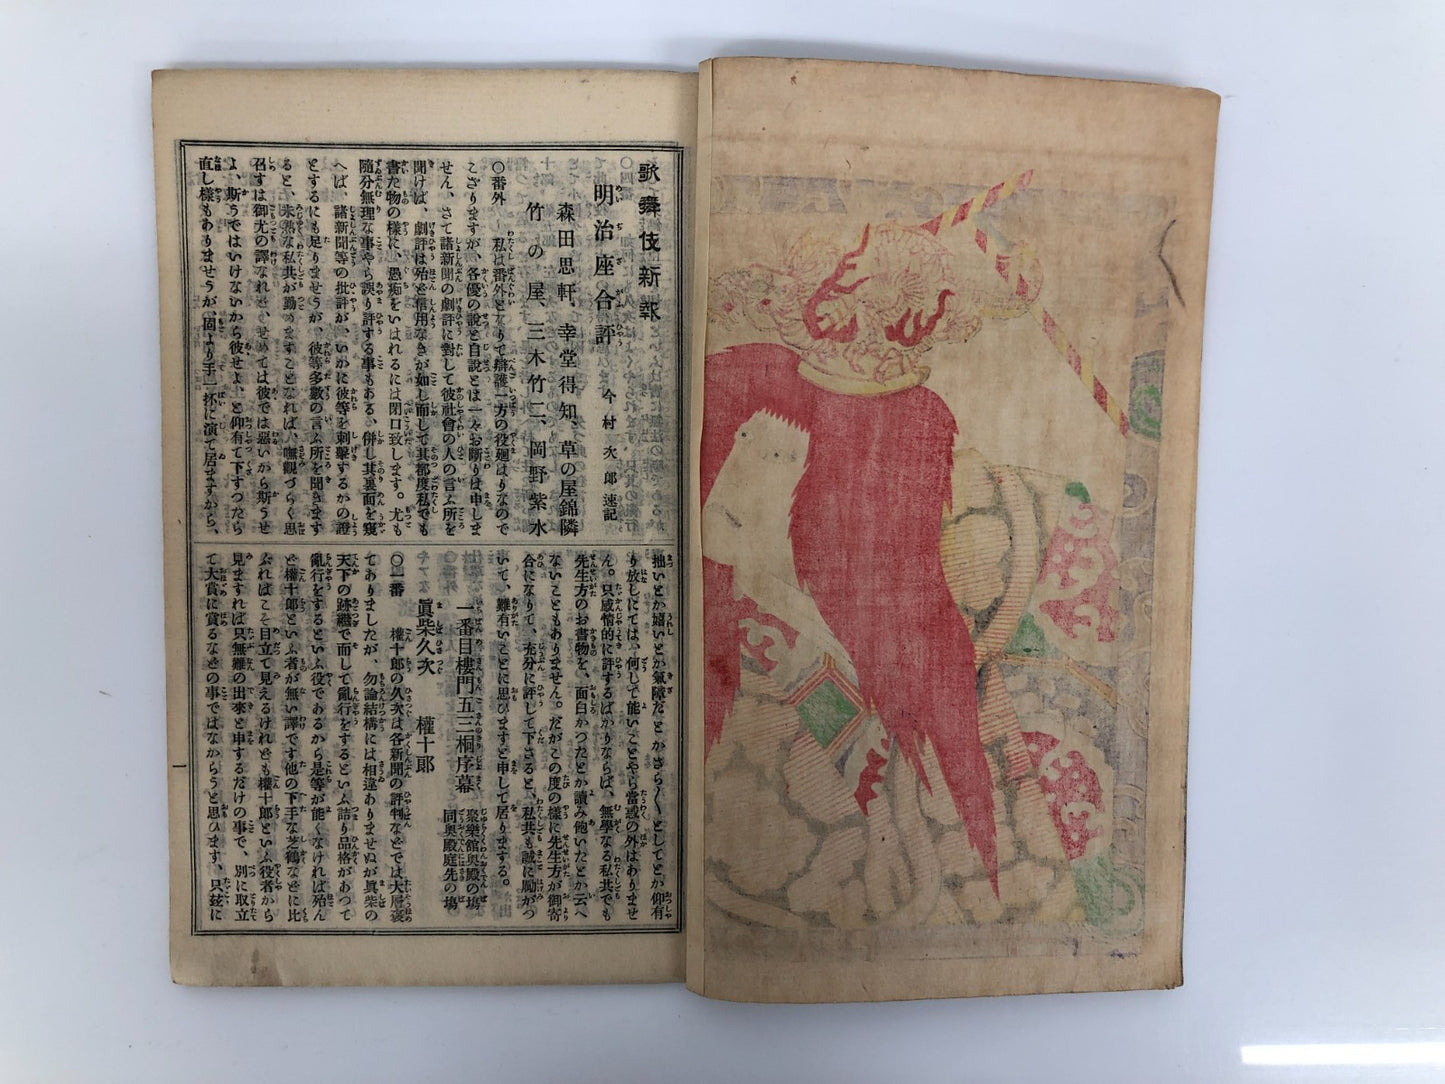 歌舞伎新報
明治座合評
今村次郎速記
森田思軒、幸堂得知、草の屋錦隣
竹の屋、三木竹二、岡野紫水
〇番外　私は番外となりて辯護一方の役廻はりなので
こざりますが、各優の説と自説とは一々お斷りは申しま
せん、さて諸新聞の劇評に對して彼社會の人の言ふ所を
聞けば、劇評は殆と信用なきが如し而して其都度私でも
書た物の樣に、愚痴をいはれるには閉口致します。尤も
隨分無理な事やら誤り評する事もある、併し其裏面を窺
へば、諸新聞等の批評が、いかに彼等を刺擊するかの證
とするにも足りませうが、彼等多數の言ふ所を聞きます
ると、未熟な私共が勤めますことなれば、嘸觀づらく思
召すは御尤の譯なれど、せめては彼では惡いから斯うせ
よ、斯うではいけないから彼せよ、と仰有て下すつたら
直し樣もありませうが、固より手一杯に演て居ますから、
拙いとか嬉いとか氣障だとかさら〱としてとか仰有
り放しにては、何して能いことやら當惑の外はありませ
ん。只感情的に評するばかりならば、無學なる私共でも
先生方のお書物を、面白かつたとか讀み飽いたとか云へ
ないこともありません。だがこの度の樣に先生方が御寄
合になりて、充分に評して下さると、私共も誠に勵がつ
いて、難有いことに思ひますと申して居りまする。
一番目樓門五三桐序幕　聚樂館奥殿の場
同奥殿庭先の場
眞柴久次　權十郎
〇一番　權十郎の久次は各新聞の評判などでは大層褒
てありましたが、勿論結構には相違ありませぬが眞柴の
天下の跡繼で而して亂行をするといふ詰り品格があつて
亂行をするといふ役であるから是等が能くなければ殆ん
ど權十郎といふ者が無い譯です他の下手な芝鶴などに比
ふればこそ目立て見えるけれども權十郎といふ役者から
見ますれば只無難の出來と申するだけの事で、別に取立
て大賞に賞るなどの事ではなからうと思ひます、只玆に
一